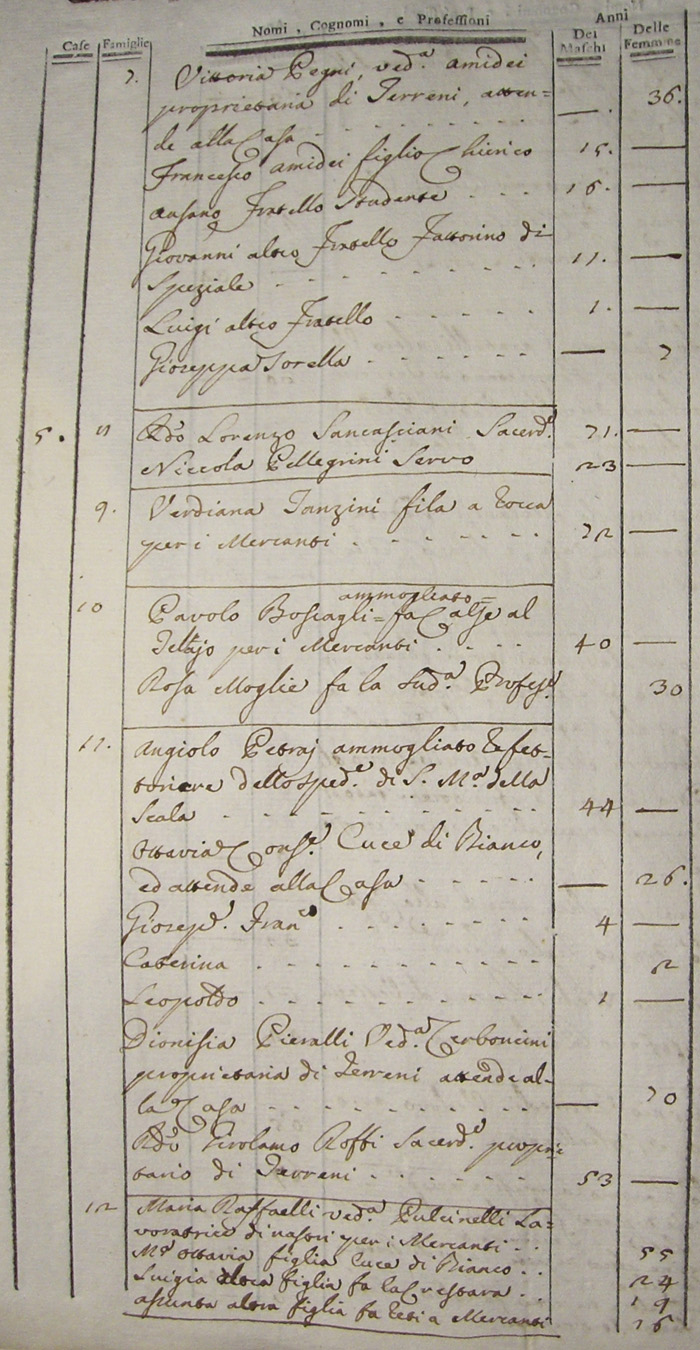 Case Famiglie Nomi, Cognomi, e Professioni Anni
Dei Maschi Delle Femmine
7. Vittoria Pegni, ved.ª Amidei
proprietaria di Terreni, atten=
de alla Casa — 36.
Francesco Amidei figlio Chierico 15. —
Ansano Fratello Studente 16. —
Giovanni altro Fratello Fattorino di
Speziale 11. —
Luigi altro Fratello 1. —
Gioseppa Sorella — 7
5. Rdo Lorenzo Sancasciani Sacerd.e 71. —
Niccola Pellegrini Servo 23 —
9. Verdiana Tanzini fila a Rocca
per i Mercanti 72 —
10 Pavolo Boscagli= ammogliato= fa Calze al
Telajo per i Mercanti 40 —
Rosa Moglie fa la sud.ª Profes.e 30
11. Angiolo Petraj ammogliato Refet=
toriere dello sped.e di S. M.ª della
Scala 44 —
Ottavia Cons.e Cuce di Bianco,
ed attende alla Casa — 26.
Giosep.e Fran.o 4 —
Caterina 2
Leopoldo 1 —
Dionisia Pieralli Ved.ª Cerboncini
proprietaria di Terreni attende al=
la Casa — 70
Rdo Girolamo Roffi Sacerd.e proprie
tario di Terreni 53 —
12 Maria Raffaelli ved.ª Pulcinelli La=
voratrice di nastri per i Mercanti 55
M.ª Ottavia figlia Cuce di Bianco 24
Luigia altra figlia fa la Crestara 19
Assunta altra figlia fa Reti a Mercanti 16